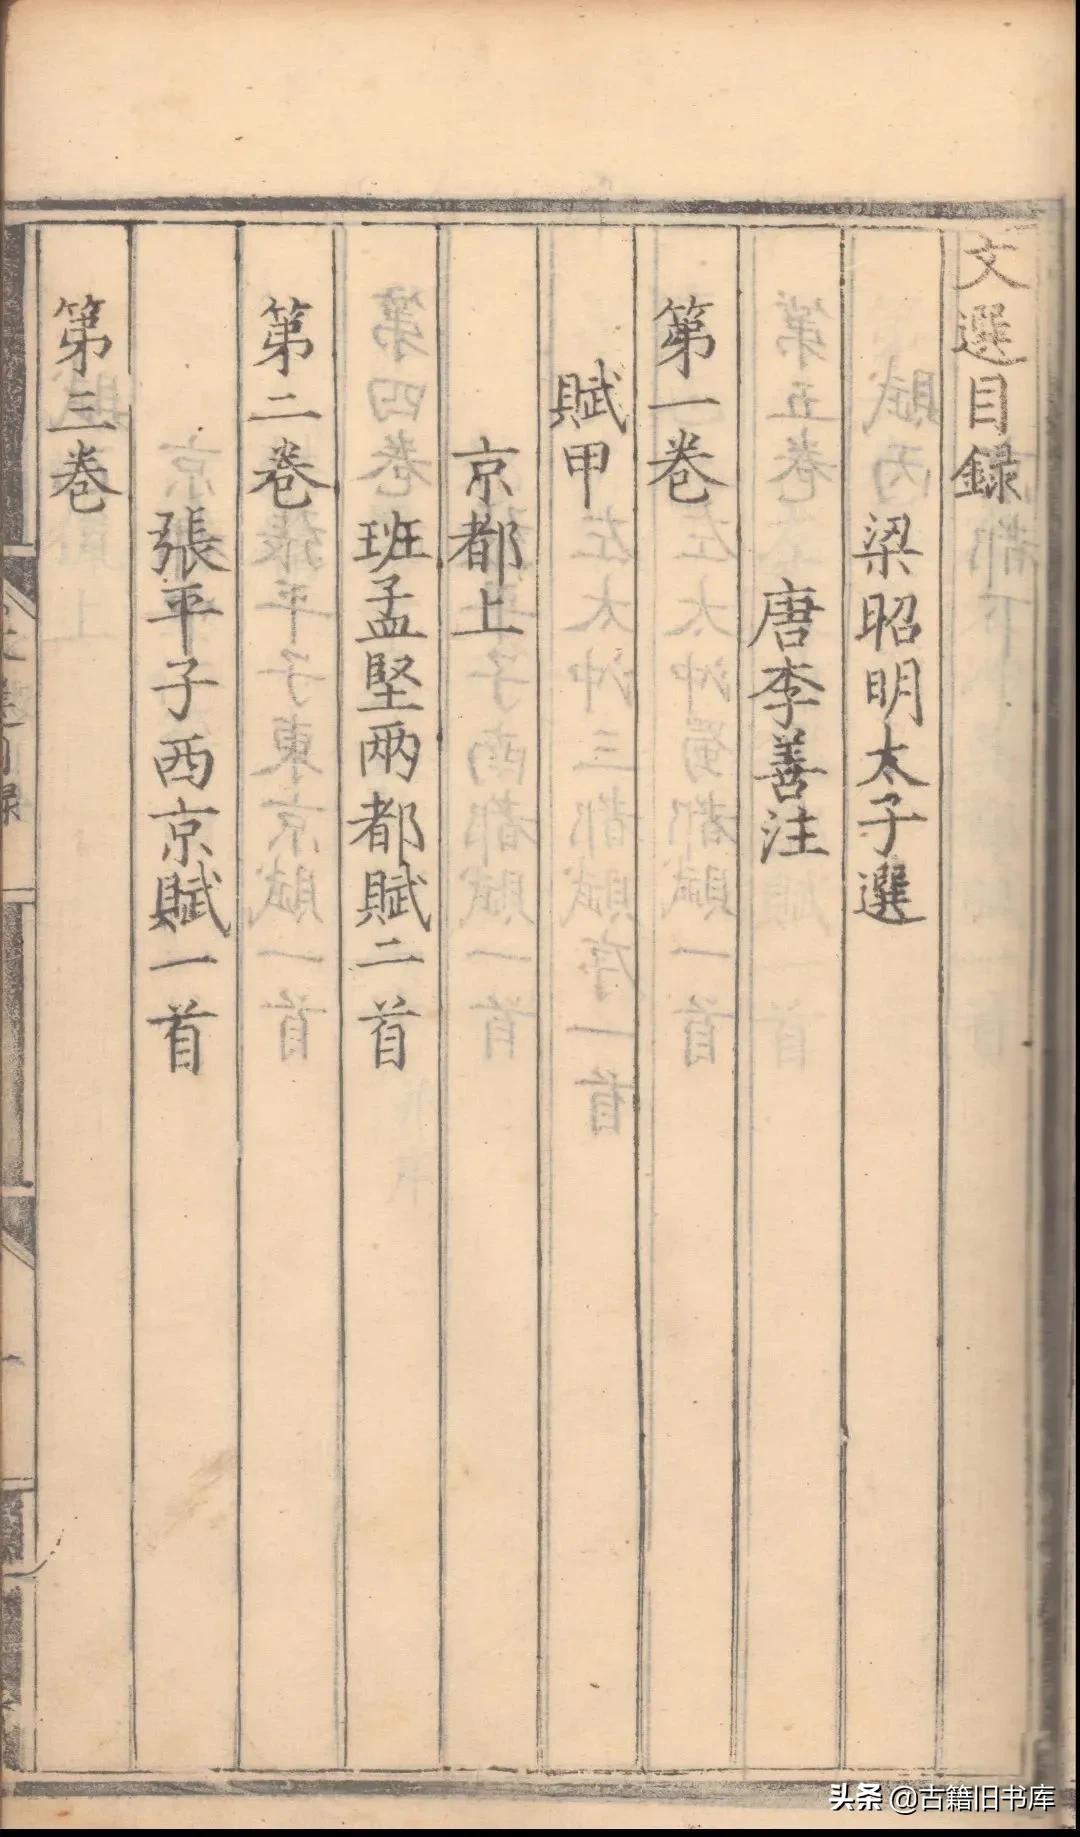 文選目録
梁昭明太子選
唐李善注
第一卷
賦甲
京都上
班孟堅兩都賦二首
第二卷
張平子西京賦一首
第三卷
头条 @古籍旧书库